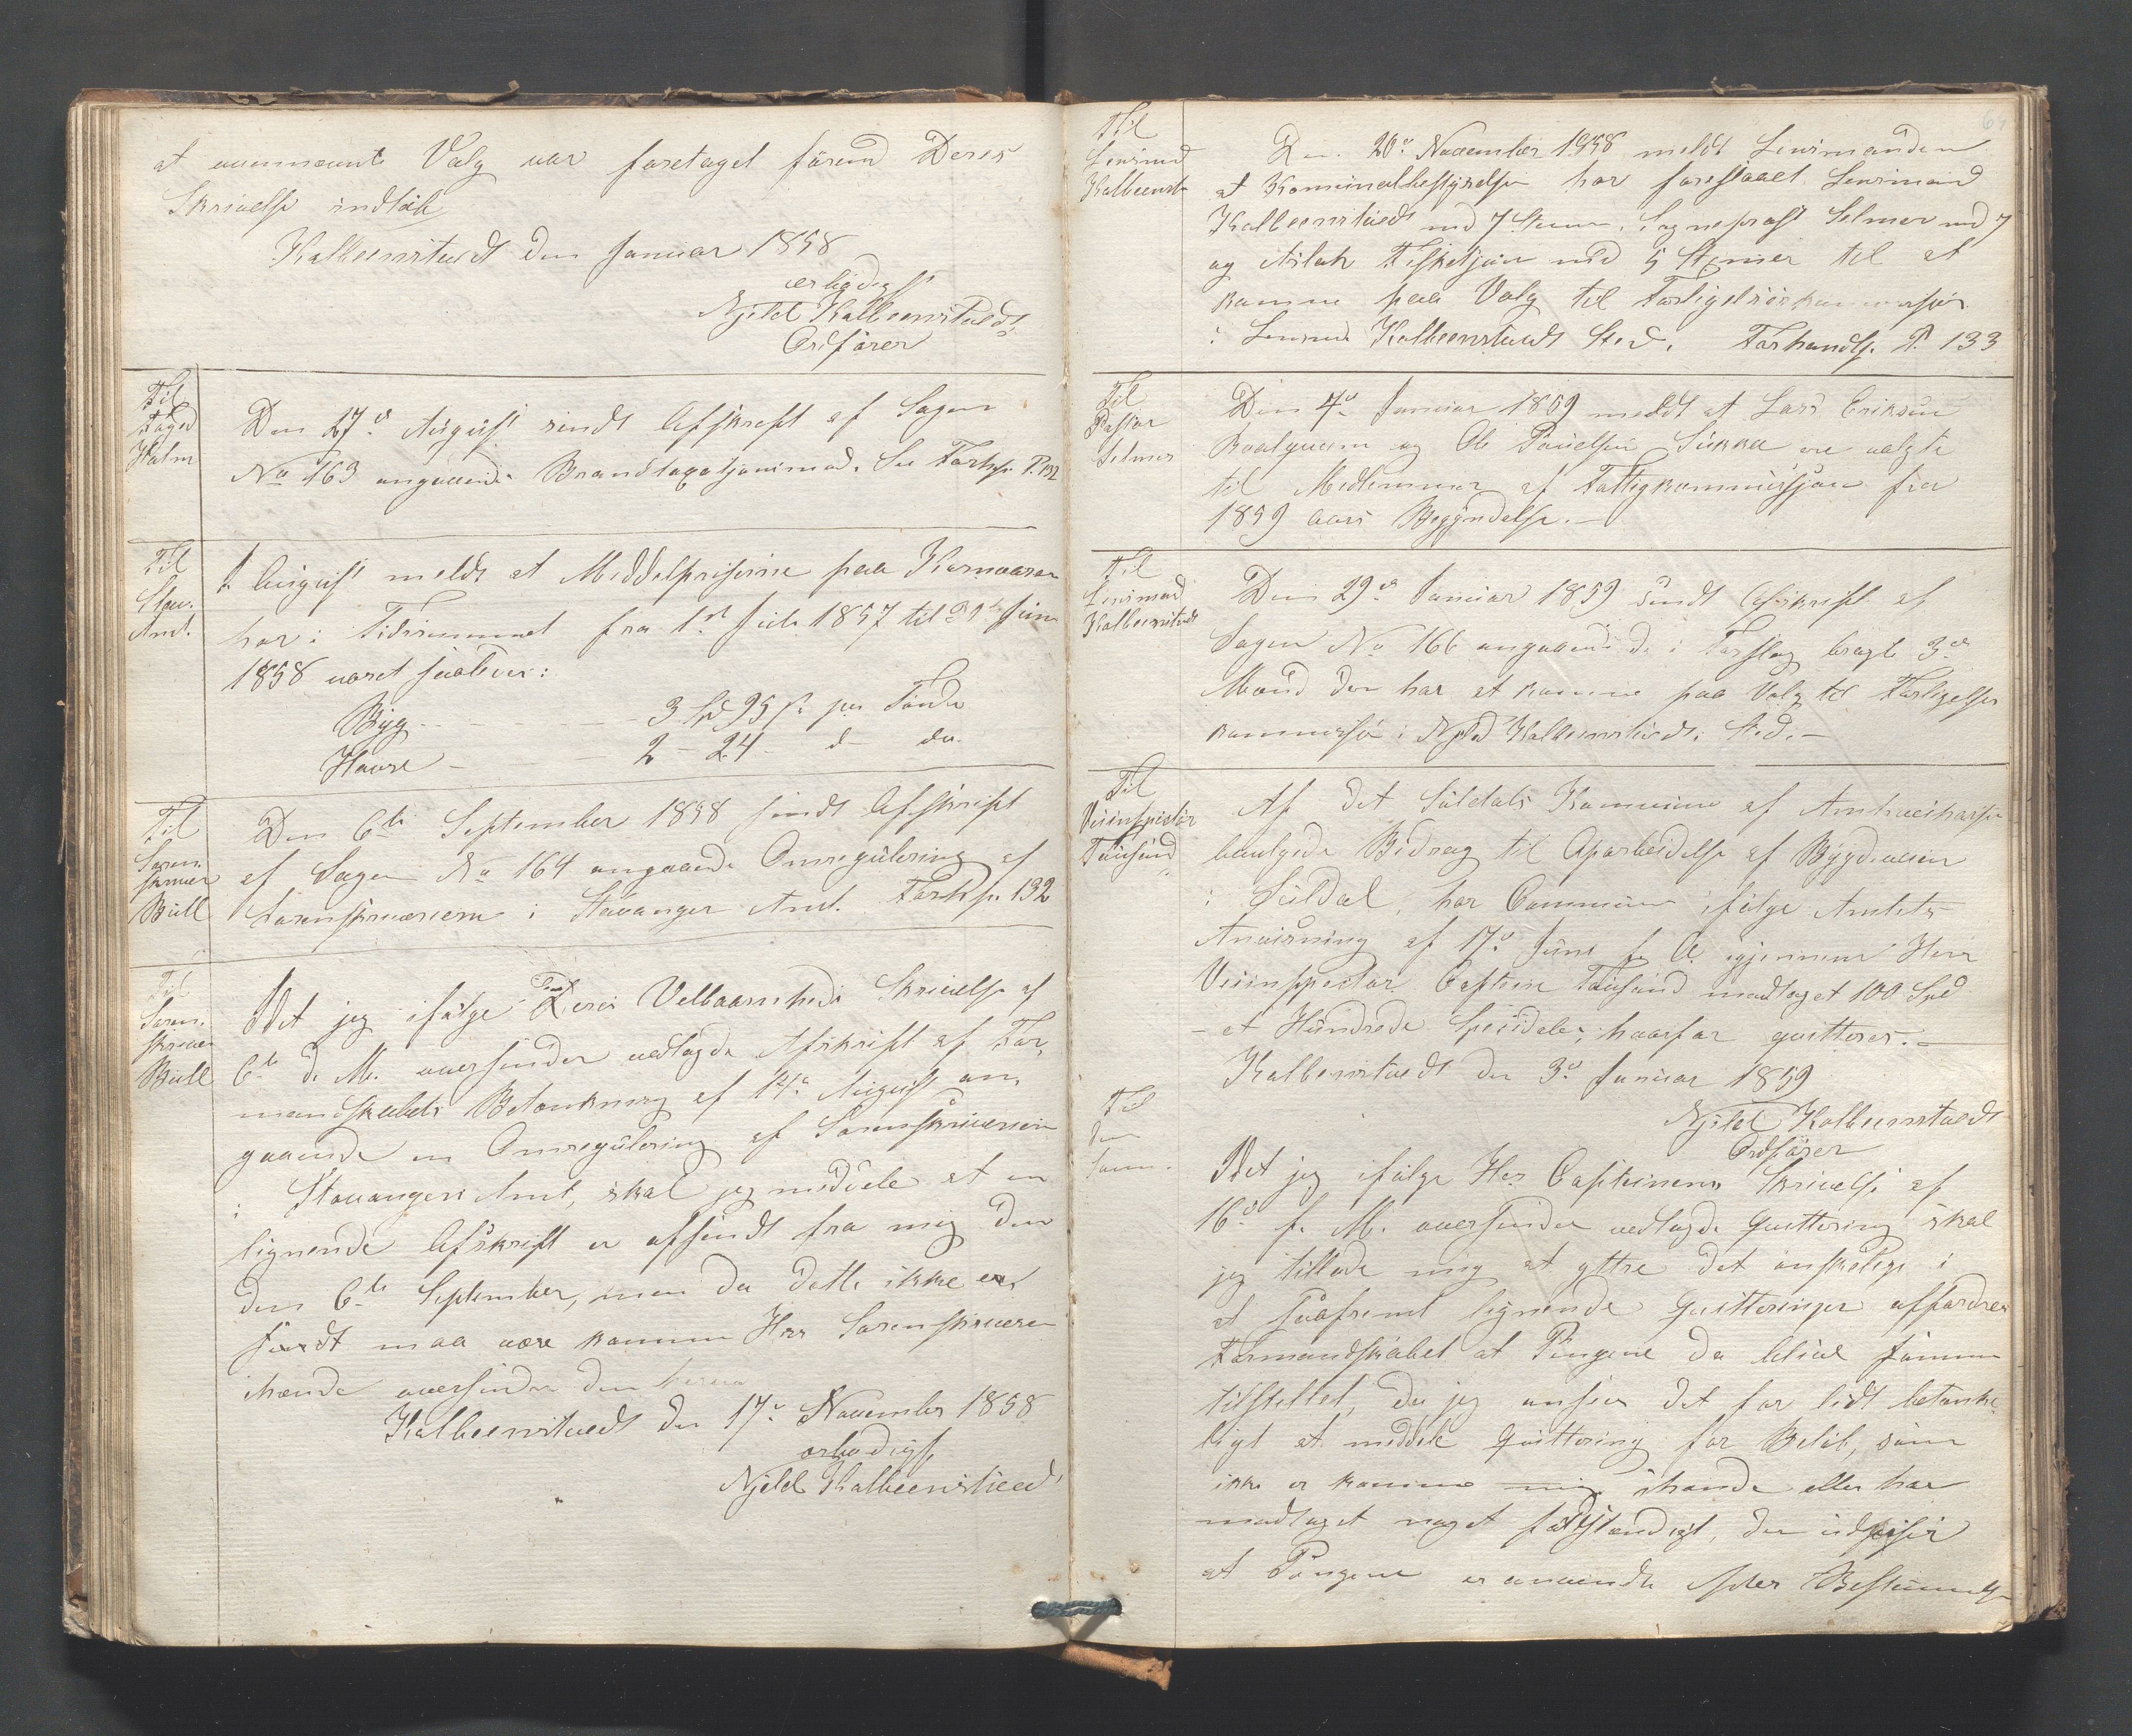 at ovennævnte Valg var foretaget förend Deres
Skrivelse indtök
Kalbeenstvedt den Januar 1858
ærbödigst
Njeld Kalbeenstvedt
Ordförer
Til
Foged
Holm
Den 27de August sendt Afskrift af Sagen
No 163 angaaende Brandtaxatjonsmænd. Se Forhs. P. 132
Til
Stav.
Amt.
August meldt at Middelpriserne paa Kornvarer
har i Tidsrummet fra 1st Juli 1857 til Juni
1858 været saaledes:
Byg - - - - 3 Spd 95 s. per Tönde
Havre - - - 2 - 24 - d - do.
Til
Soren-
skriver
Bull
Den 6te September 1858 sendt Afskrift
af Sagen No 164 angaaende Omregulering af
Sorenskriverierne i Stavanger Amt. Forhs. 132
Til
Soren-
skriver
Bull
Idet jeg ifölge Deres Velbaarenheds Skrivelse af
6te d. M. oversender vedlagde Afskrift af For-
mandskabets Betænkning af 14de August an-
gaaende en Omregulering af Sorenskriverierne
i Stavangers Amt, skal jeg meddele at en
lignende Afskrift er afsendt fra mig den
den 6te September, men da dette ikke
maa være kommen Herr Sorenskriveren
ihænde oversendes den herved
Kalbeenstvedt den 17de November 1858
ærbödigst
Njeld Kalbeenstvedt
61
Til
Lensmd
Kalbeenstv
Den 20de November 1858 meldt Lensmanden
at Komunalbestyrelsen har foreslaaet Lensmand
Kalbeenstvedt med 7 Stemmer, Sogneprest Selmer med 7
og Aslak Fisketjön med 5 Stemmer til at
komme paa Valg til Forligelseskommissær
i Lensmd Kalbeenstvedts Sted. Forhandls. P. 133
Til
Pastor
Selmer
Den 4de Januar 1859 meldt at Lars Eriksen
Roalqvam og Ole Povelsen Sukka ere valgte
til Medlemmer af Fattigkommissjonen fra
1859 Aars Begyndelse.-
Til
Lensmand
Kalbeenstvedt
Den 29de Januar 1859 sendt Afskrift af
Sagen No 166 angaaende de i Forslag bragte 3de
Mænd der har at komme paa Valg til Forligelses
kommissær i Njeld Kalbeenstvedts Sted.-
Til
Veiinspectör
Tausand
Af det Suldals Kommune af Amtsveikassen
bevilgede Bidrag til Oparbeidelse af Bygdeveien
i Suldal, har Communen ifölge Amtets
Anviisning af 17de Juni f. A. igjennem Herr
Veiinspectör Captein Tausand modtaget 100 Spd
- et Hundrede Speidaler, hvorfor qvitteres.-
Kalbeenstvedt den 3de Januar 1859
Njeld Kalbeenstvedt
Ordförer
Til
den
samme.
Idet jeg ifölge Her Capteinens Skrivelse af
16de f. M. oversender vedlagde Qvittering skal
jeg tillade mig at yttre det önskelige i
at saafremt lignende Qvitteringer affordres
Formandskabet at Pengene da bliver samme
tilstillet, da jeg anseer det for lidt betænke-
ligt at meddele Qvittering for Belöb, som
ikke er komne mig ihænde eller har
modtaget noget fyldstændigt, der udviser
at Pengene er anvendte efter Bestemmelsen